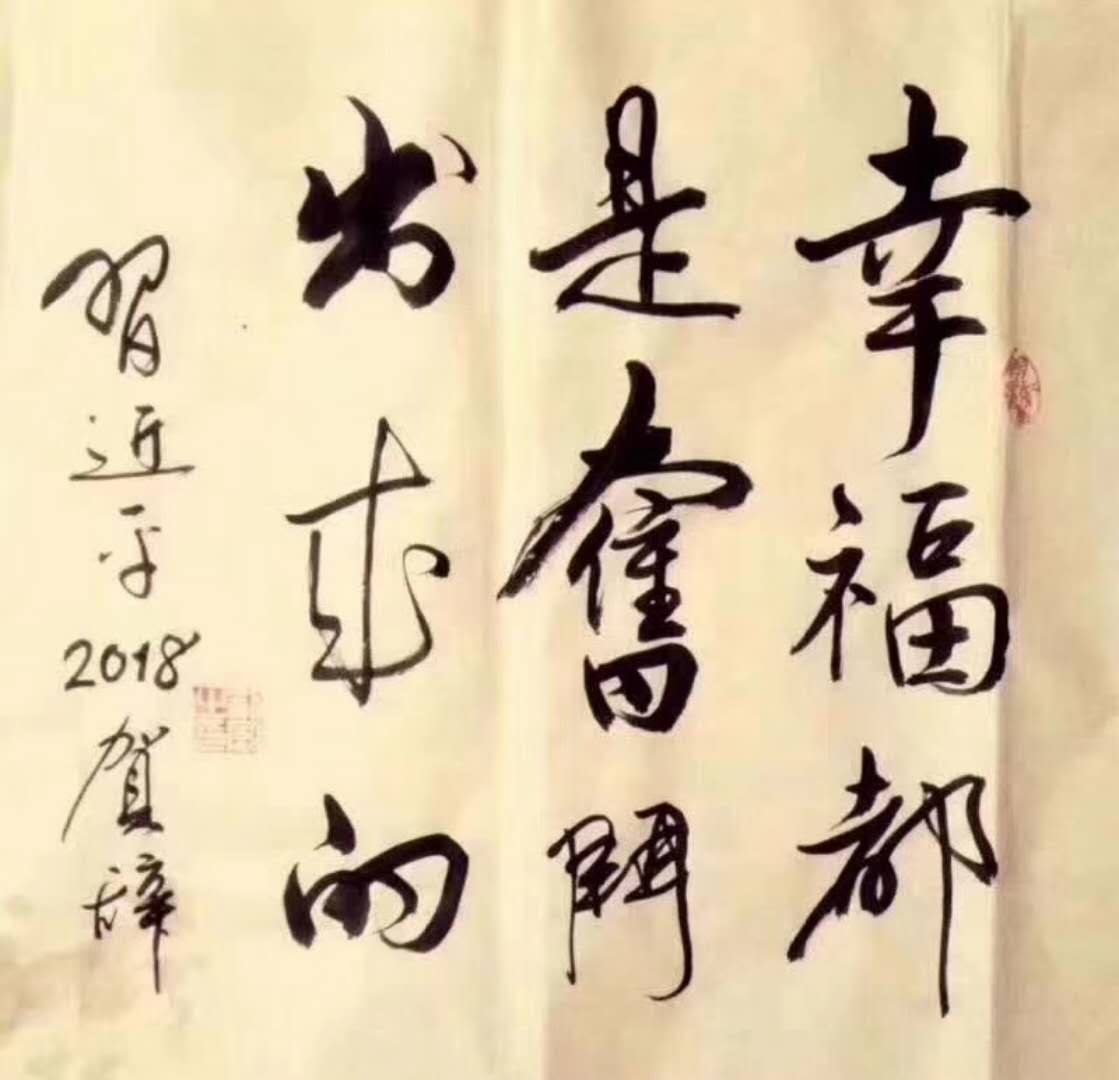 幸福都
是奮鬥
出來的
習近平2018賀辞